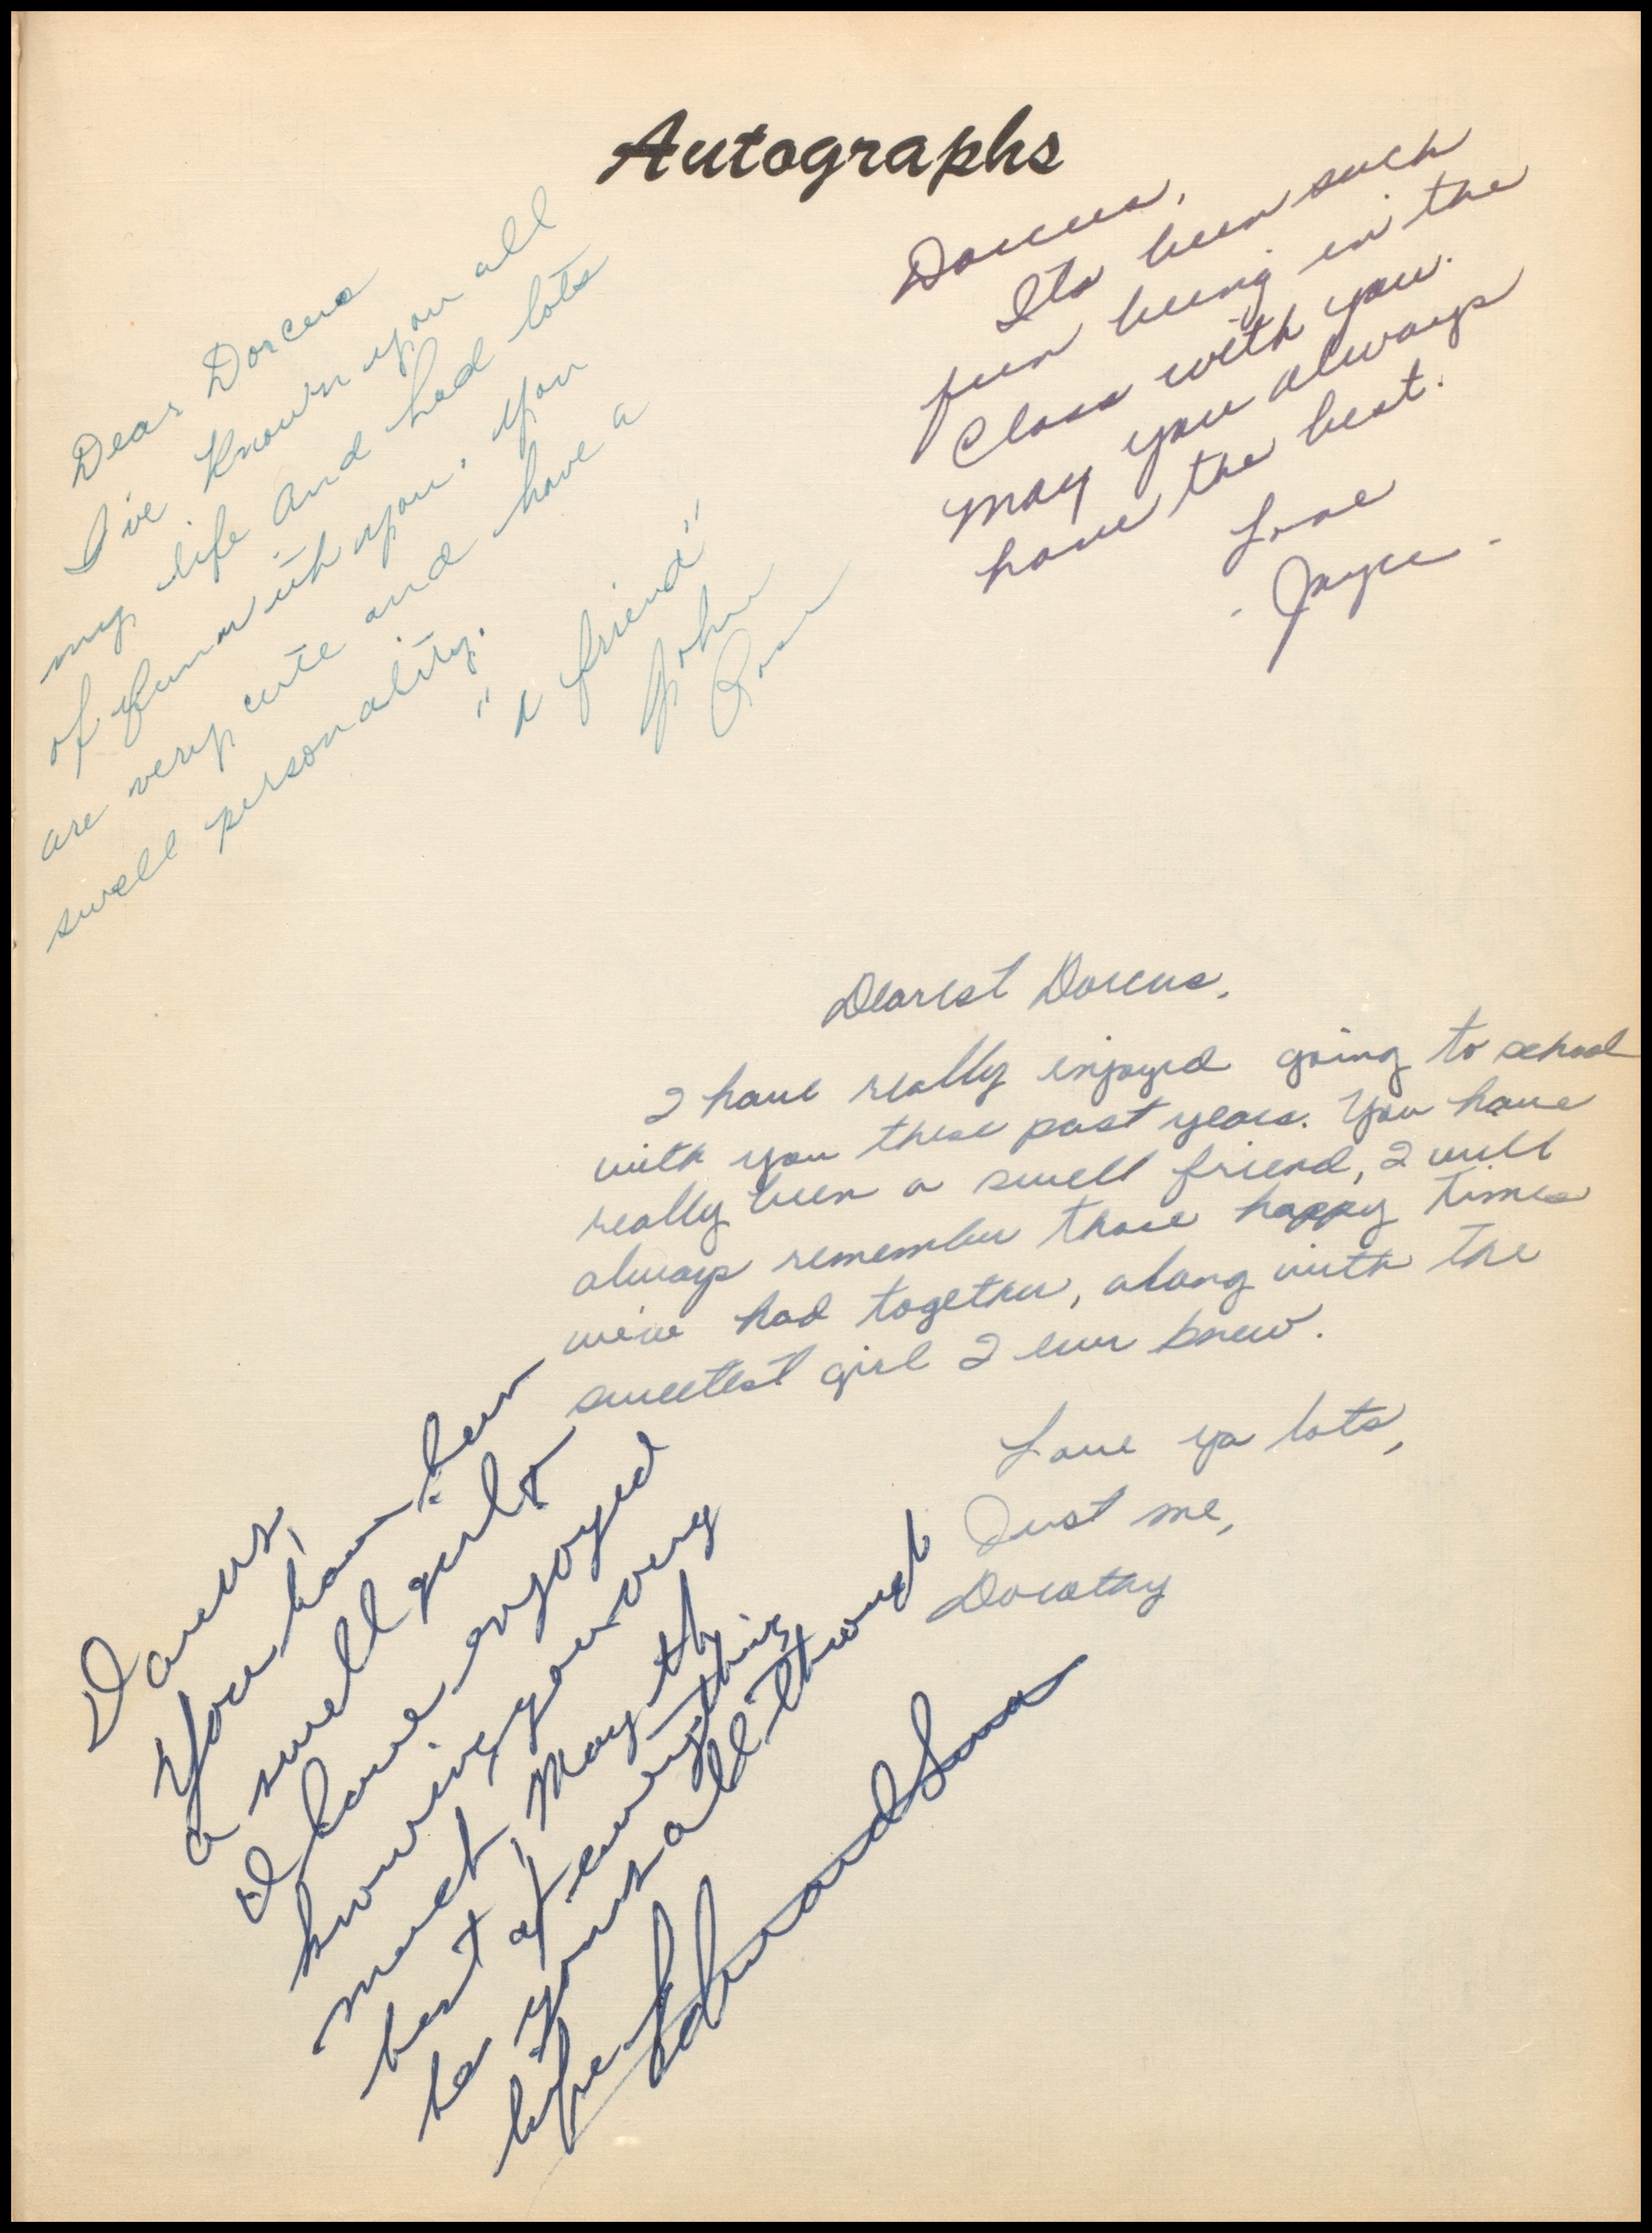 Autographs
Dear Dorcus
I've known you all
my life and had lots
of fun with you. You
are very cute and have a
swell personality.
"a friend"
John
Dorcus,
Its been such
fun being in the
Class with you.
May you always
have the best.
Love
- Joyce -
Dearest Dorcus,
I have really enjoyed going to school
with you these past years. You have
really been a swell friend, I will
always remember those happy times
we've had together, along with the
sweetest girl I ever knew.
Love ya lots,
Just me,
Dorothy
Dorcus,
You have been
a swell girl &
I have enjoyed
knowing you very
much, May the
best of everything
be yours all through
life
Edward